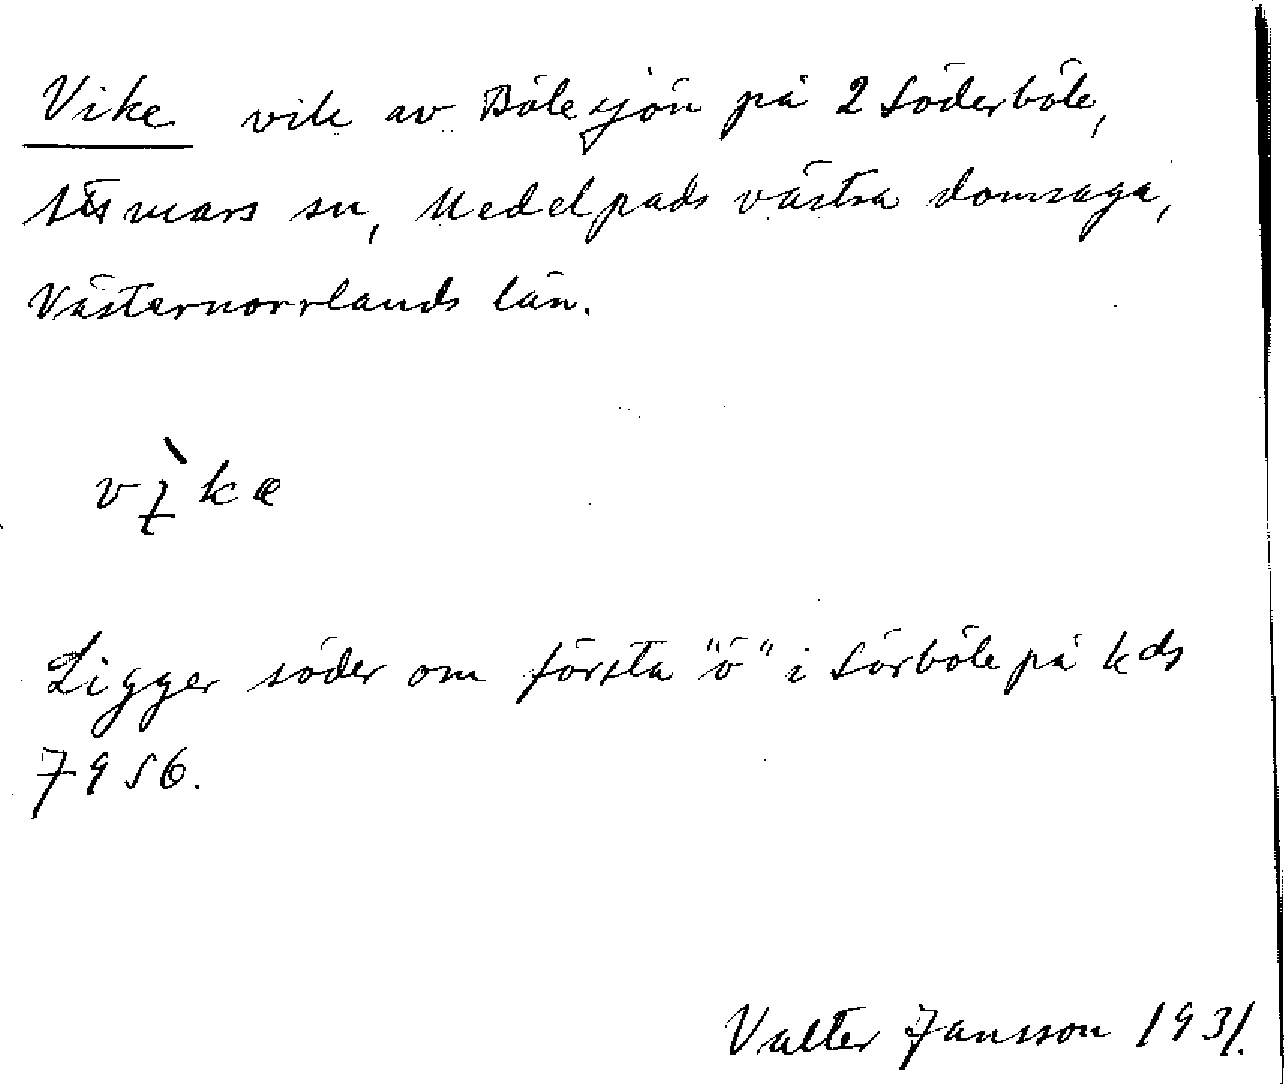 Vike vik av Bölesjön på 2 Söderböle,
Attmars sn, Medelpads västra domsaga,
Västernorrlands län.
vìka
Ligger söder om första "ö" i Sörböle på kds
7956.
Valter Jansson 1931.